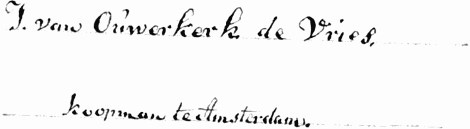 J. van Ouwerkerk de Vries,
koopman te Amsterdam.